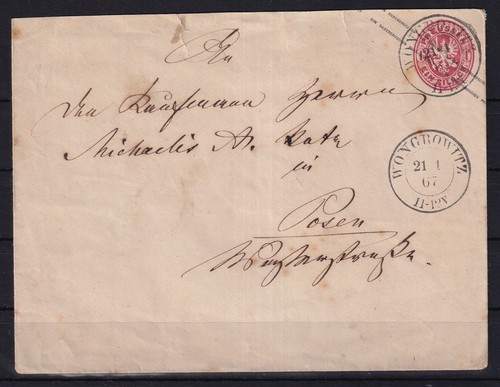 An
den Kaufmann Herrn
Michaelis A. Katz
in
Posen
WONGROWITZ
21 1
67
11-12V